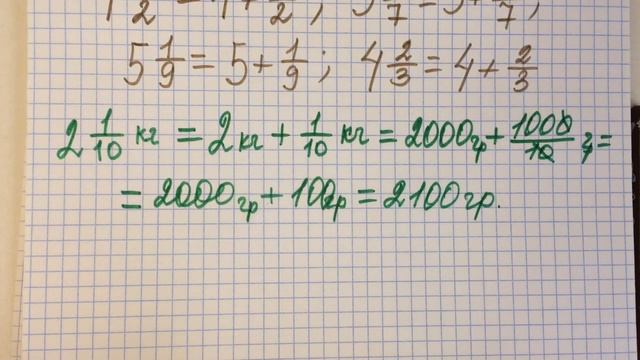 5 1/9 = 5 + 1/9 ; 4 2/3 = 4 + 2/3
2 1/10 кг = 2кг + 1/10 кг = 2000гр + 1000/10 г =
= 2000гр + 100гр = 2100гр.